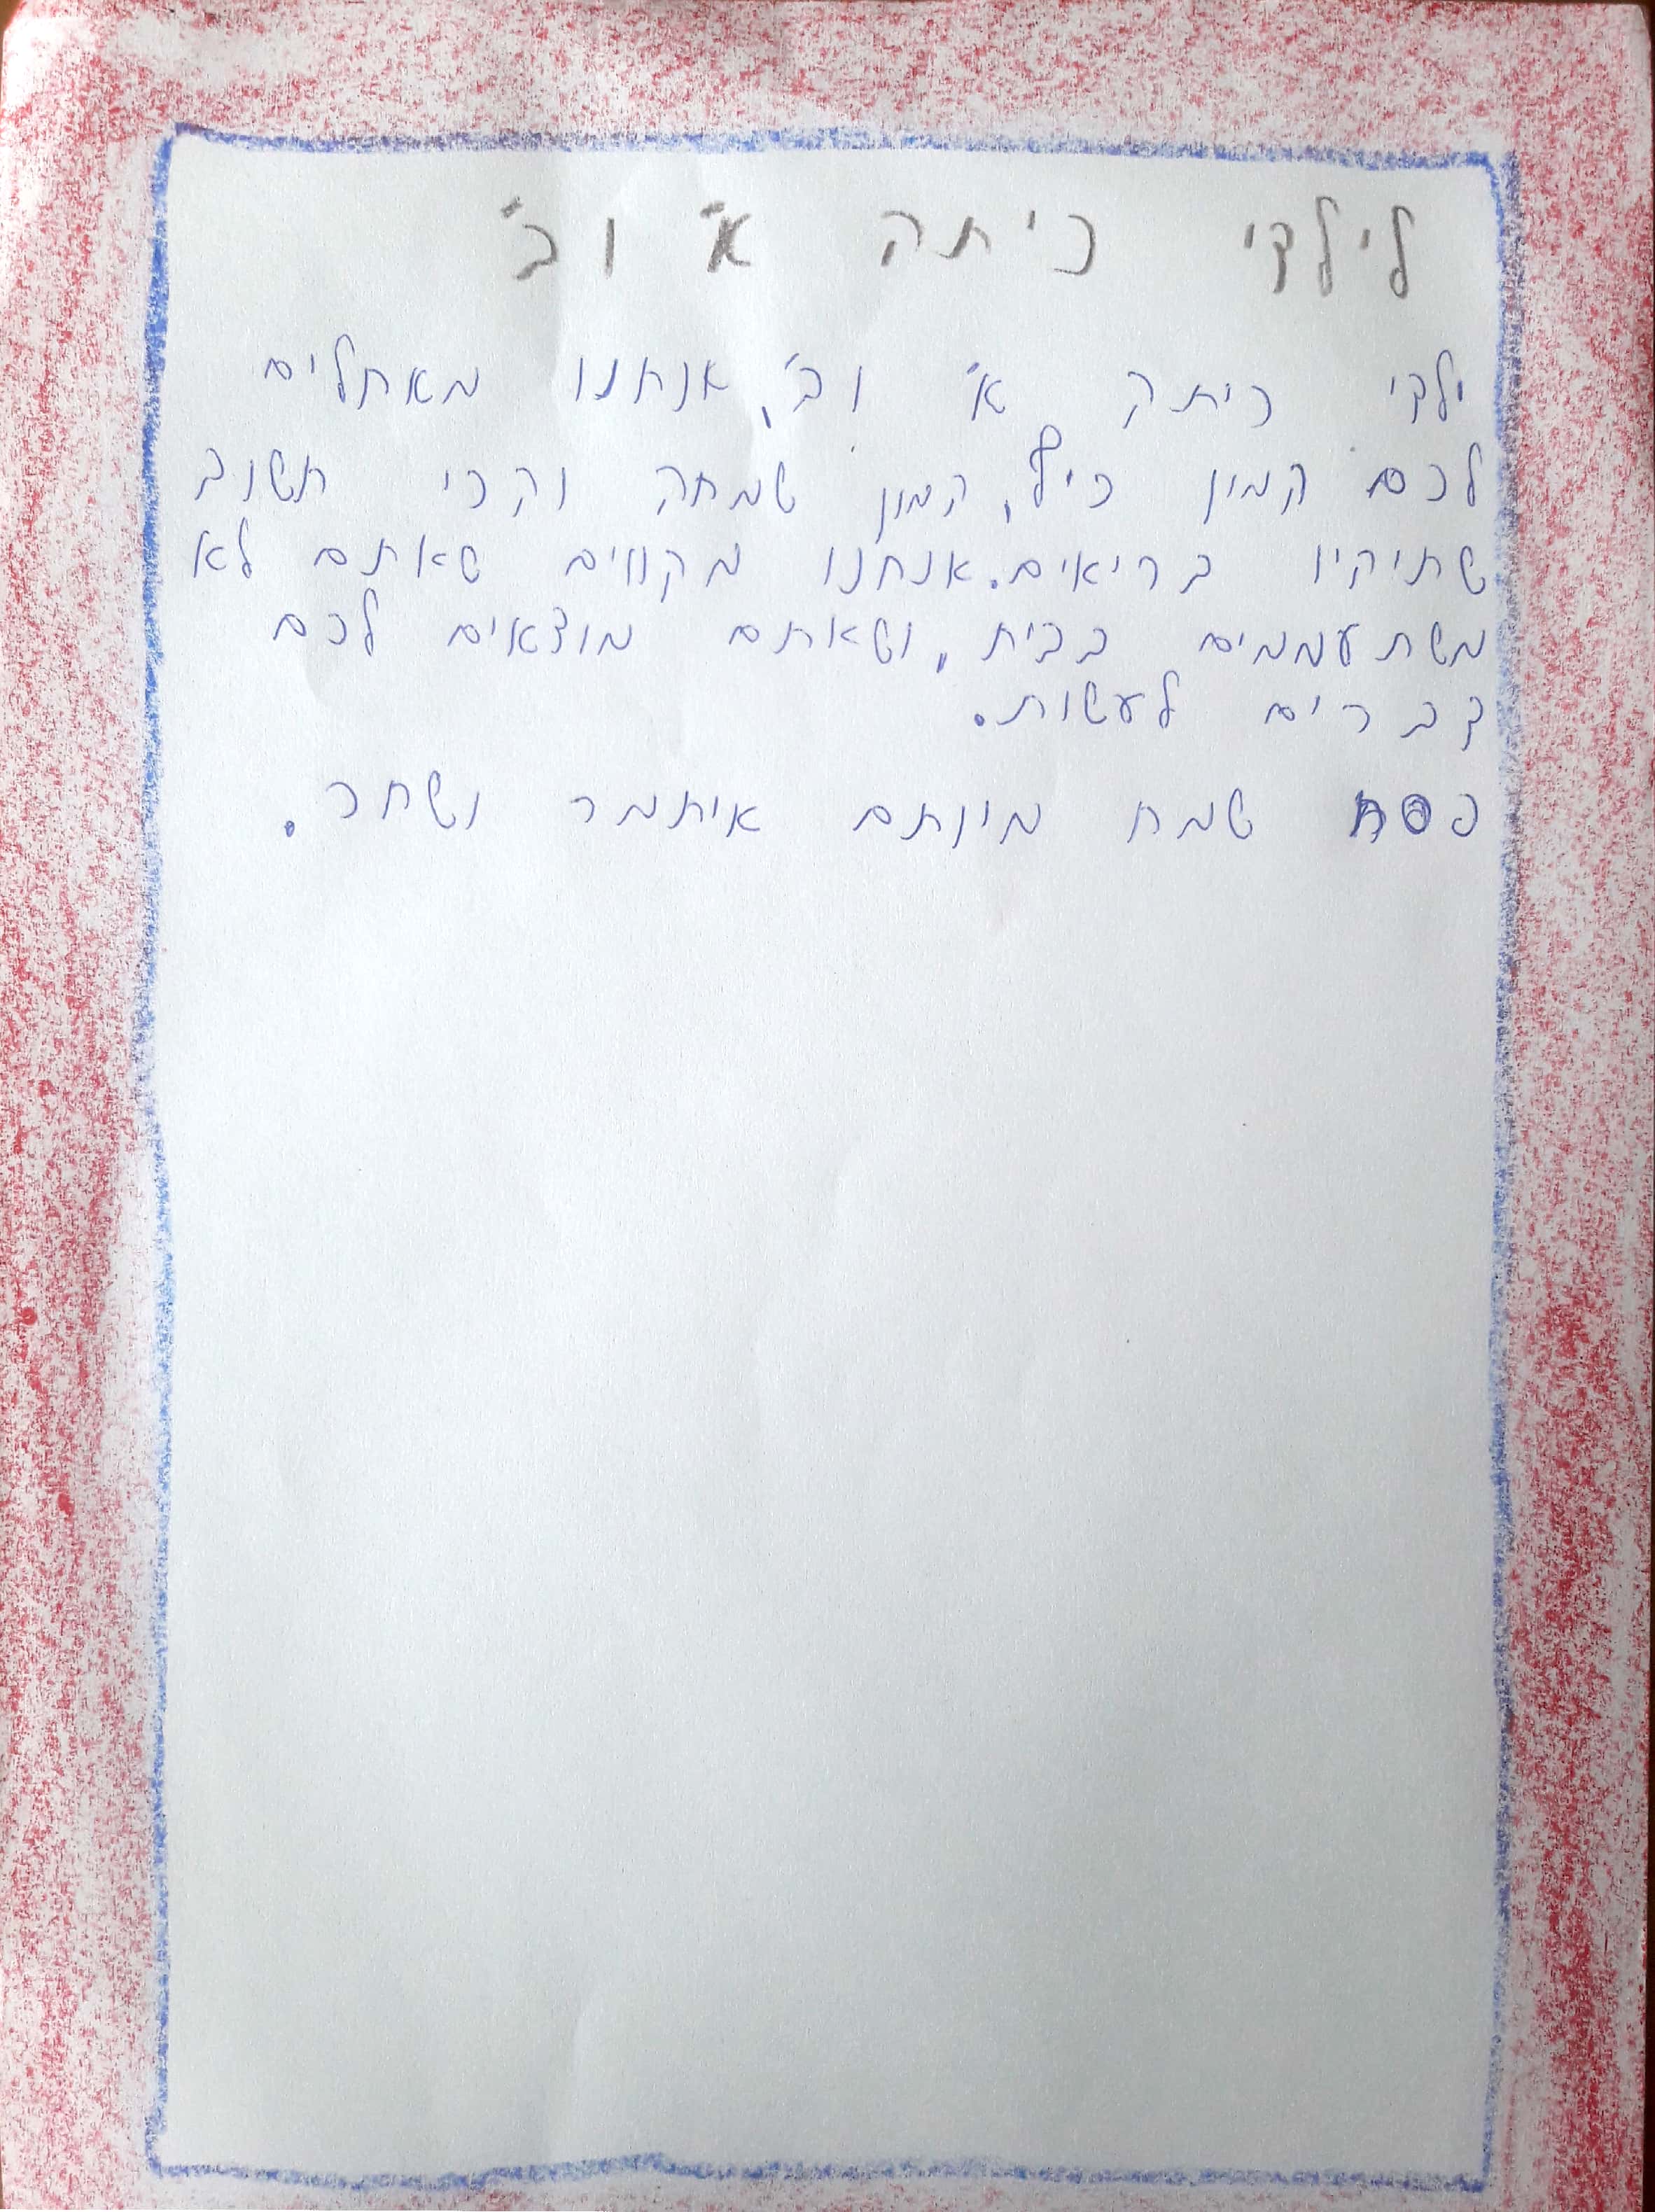 לילדי כיתה א' וב'
ילדי כיתה א' וב', אנחנו מאחלים
לכם המון כיף, המון שמחה והכי חשוב
שתיהיו בריאים. אנחנו מקווים שאתם לא
משתעממים בבית, ושאתם מוצאים לכם
דברים לעשות.
פסח שמח מיותם איתמר ושחר.